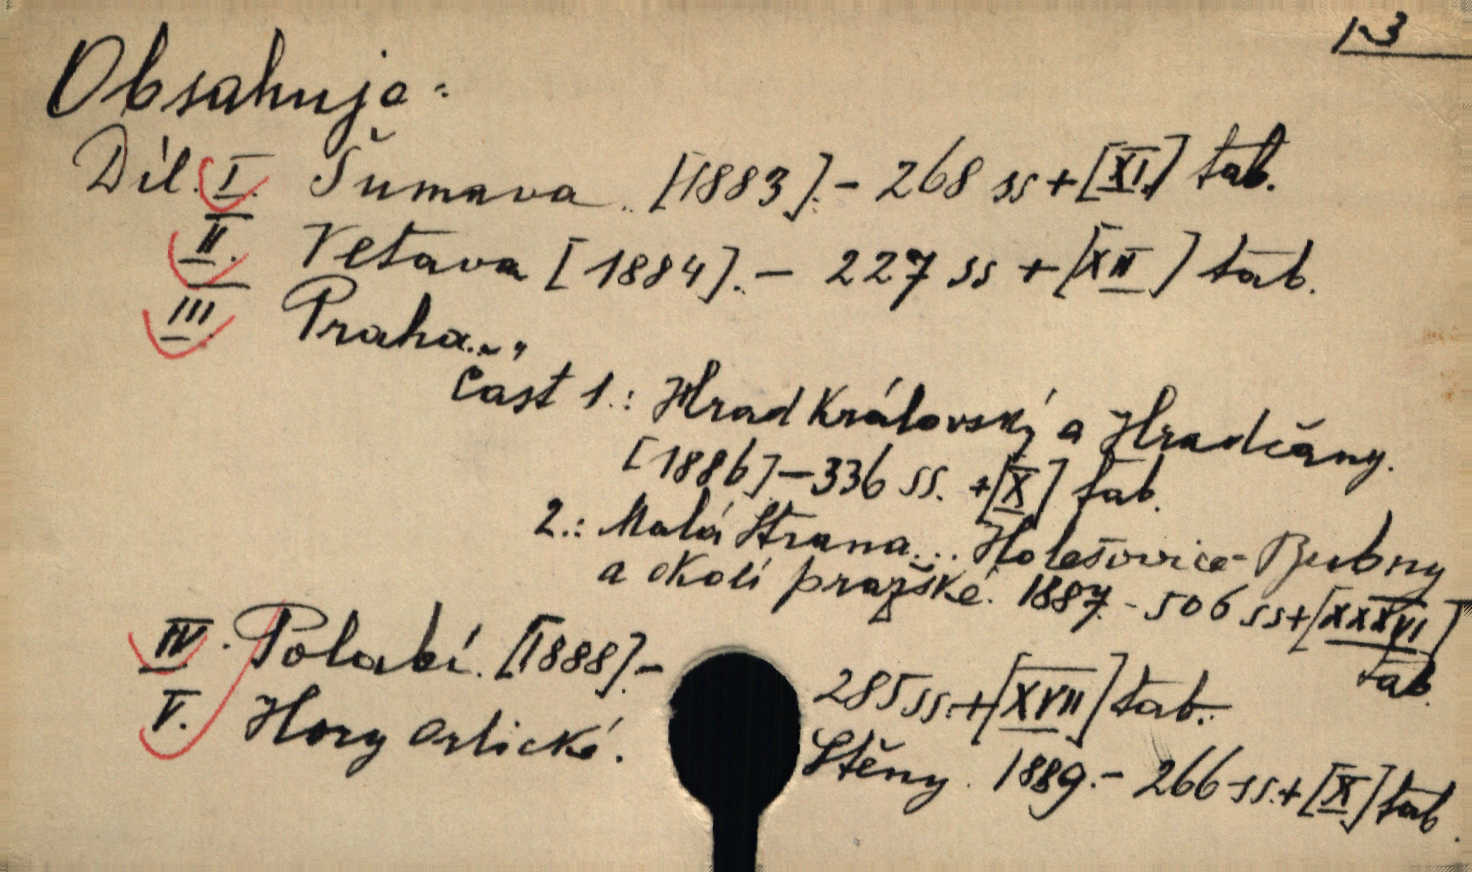 1-3
Obsahuje:
Díl. I. Šumava. [1883].- 268 ss + [XI.] tab.
II. Vltava [1884].- 227 ss + [XII] tab.
III Praha..
Část 1.: Hrad Královský a Hradčany.
[1886]-336 ss. +[X] tab.
2.: Malá Strana... Holešovice-Bubny
a okolí pražské. 1887.- 506 ss+[XXXVI]
tab.
IV. Polabí. [1888].- 285 ss.+[XVII] tab.
V. Hory Orlické. Stěny. 1889.- 266 ss.+[X] tab.